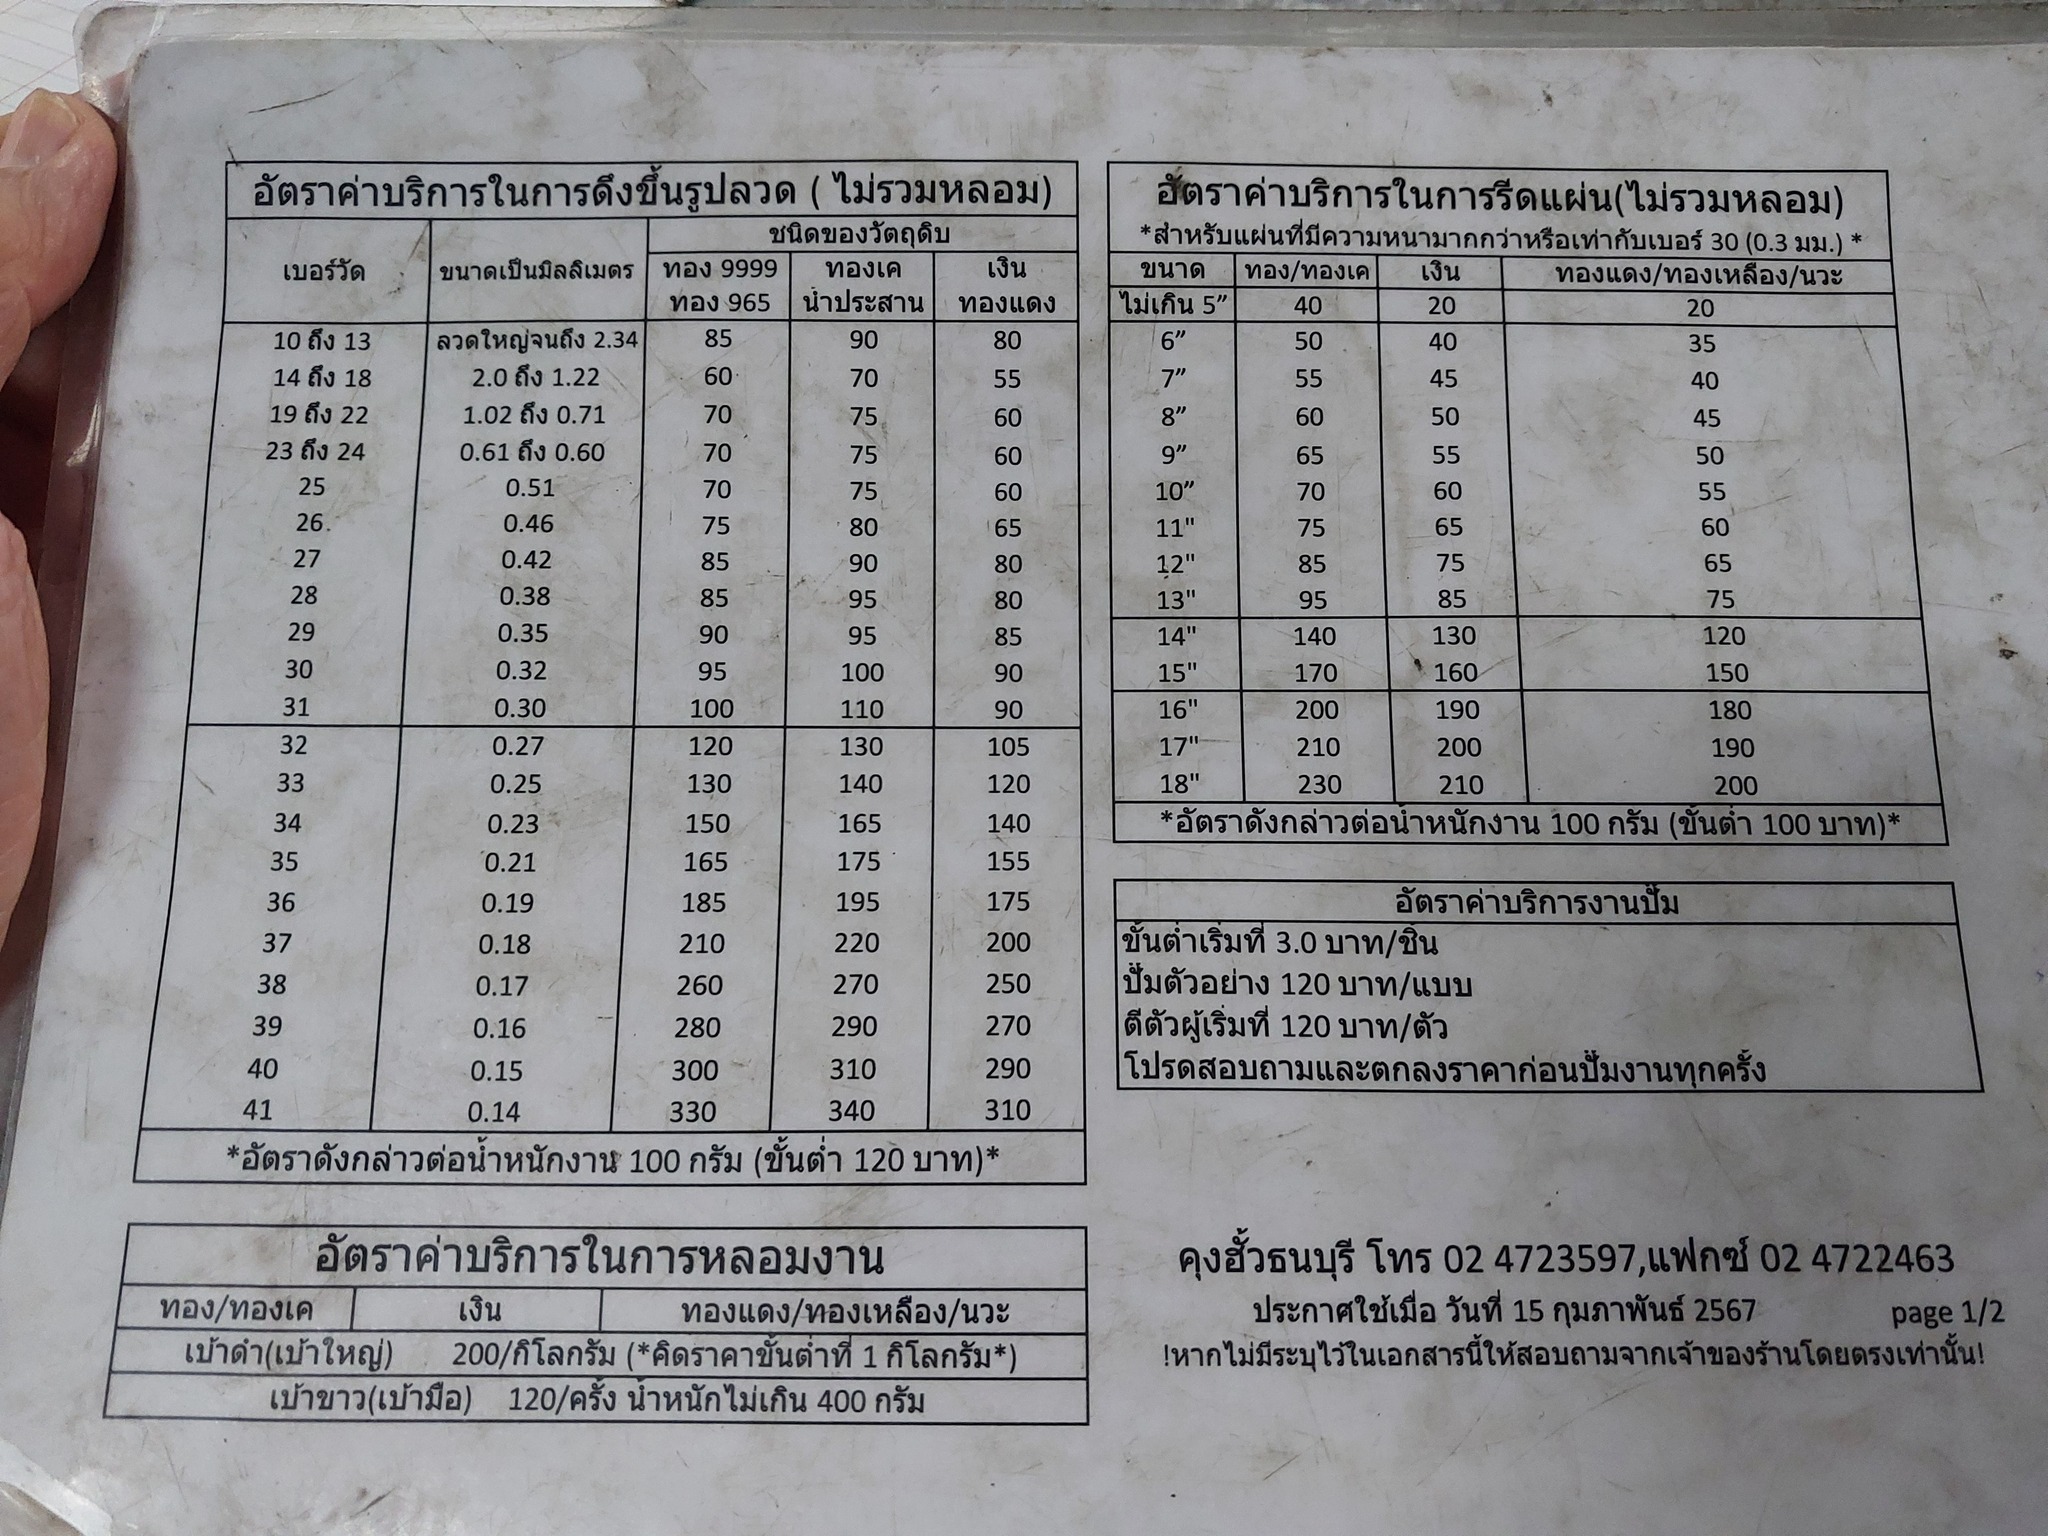 อัตราค่าบริการในการดึงขึ้นรูปลวด ( ไม่รวมหลอม)
เบอร์วัด ขนาดเป็นมิลลิเมตร ชนิดของวัตถุดิบ
ทอง 9999 ทองเค เงิน
ทอง 965 น้ำประสาน ทองแดง
10 ถึง 13 ลวดใหญ่จนถึง 2.34 85 90 80
14 ถึง 18 2.0 ถึง 1.22 60 70 55
19 ถึง 22 1.02 ถึง 0.71 70 75 60
23 ถึง 24 0.61 ถึง 0.60 70 75 60
25 0.51 70 75 60
26 0.46 75 80 65
27 0.42 85 90 80
28 0.38 85 95 80
29 0.35 90 95 85
30 0.32 95 100 90
31 0.30 100 110 90
32 0.27 120 130 105
33 0.25 130 140 120
34 0.23 150 165 140
35 0.21 165 175 155
36 0.19 185 195 175
37 0.18 210 220 200
38 0.17 260 270 250
39 0.16 280 290 270
40 0.15 300 310 290
41 0.14 330 340 310
*อัตราดังกล่าวต่อน้ำหนักงาน 100 กรัม (ขั้นต่ำ 120 บาท)*
อัตราค่าบริการในการหลอมงาน
ทอง/ทองเค เงิน ทองแดง/ทองเหลือง/นวะ
เบ้าดำ(เบ้าใหญ่) 200/กิโลกรัม (*คิดราคาขั้นต่ำที่ 1 กิโลกรัม*)
เบ้าขาว(เบ้ามือ) 120/ครั้ง น้ำหนักไม่เกิน 400 กรัม
อัตราค่าบริการในการรีดแผ่น(ไม่รวมหลอม)
*สำหรับแผ่นที่มีความหนามากกว่าหรือเท่ากับเบอร์ 30 (0.3 มม.) *
ขนาด ทอง/ทองเค เงิน ทองแดง/ทองเหลือง/นวะ
ไม่เกิน 5” 40 20 20
6” 50 40 35
7” 55 45 40
8” 60 50 45
9” 65 55 50
10” 70 60 55
11" 75 65 60
12" 85 75 65
13" 95 85 75
14" 140 130 120
15" 170 160 150
16" 200 190 180
17" 210 200 190
18" 230 210 200
*อัตราดังกล่าวต่อน้ำหนักงาน 100 กรัม (ขั้นต่ำ 100 บาท)*
อัตราค่าบริการงานปั๊ม
ขั้นต่ำเริ่มที่ 3.0 บาท/ชิ้น
ปั๊มตัวอย่าง 120 บาท/แบบ
ตีตัวผู้เริ่มที่ 120 บาท/ตัว
โปรดสอบถามและตกลงราคาก่อนปั๊มงานทุกครั้ง
คุงฮั้วธนบุรี โทร 02 4723597,แฟกซ์ 02 4722463
ประกาศใช้เมื่อ วันที่ 15 กุมภาพันธ์ 2567 page 1/2
!หากไม่มีระบุไว้ในเอกสารนี้ให้สอบถามจากเจ้าของร้านโดยตรงเท่านั้น!